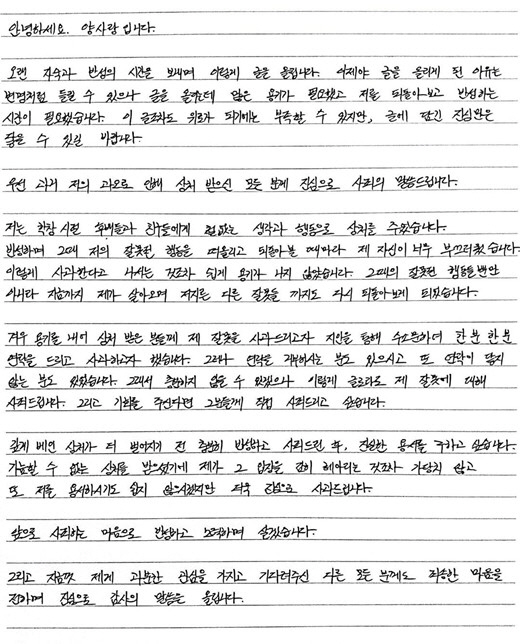 안녕하세요. 양사랑 입니다.
오랜 자숙과 반성의 시간을 보내며 이렇게 글을 올립니다. 이제야 글을 올리게 된 이유는
변명처럼 들릴 수 있으나 글을 올리는데 많은 용기가 필요했고 저를 되돌아보고 반성하는
시간이 필요했습니다. 이 글조차도 위로가 되기에는 부족할 수 있지만, 글에 담긴 진심만은
닿을 수 있길 바랍니다.
우선 과거 저의 과오로 인해 상처 받으신 모든 분께 진심으로 사죄의 말씀드립니다.
저는 학창 시절 후배들과 친구들에게 철없는 생각과 행동으로 상처를 주었습니다.
반성하며 그때 저의 잘못된 행동을 떠올리고 되돌아볼 때마다 제 자신이 너무 부끄러웠습니다.
이렇게 사과한다고 나서는 것조차 쉽게 용기가 나지 않았습니다. 그때의 잘못된 행동들 뿐만
아니라 지금까지 제가 살아오며 저지른 다른 잘못들 까지도 다시 되돌아보게 되었습니다.
겨우 용기를 내어 상처 받은 분들께 제 잘못을 사과드리고자 지인을 통해 수소문하여 한 분 한 분
연락을 드리고 사과하고자 했습니다. 그러나 연락을 거부하시는 분도 있으시고 또 연락이 닿지
않는 분도 있었습니다. 그래서 충분하지 않을 수 있겠으나 이렇게 글로라도 제 잘못에 대해
사죄드립니다. 그리고 기회를 주신다면 그분들께 직접 사죄드리고 싶습니다.
깊게 베인 상처가 더 벌어지기 전 충분히 반성하고 사죄드린 후, 진실한 용서를 구하고 싶습니다.
가늠할 수 없는 상처를 받으셨기에 제가 그 입장을 감히 헤아리는 것조차 가당치 않고
또 저를 용서하시기도 쉽지 않으시겠지만 더욱 진심으로 사과드립니다.
앞으로 사죄하는 마음으로 반성하고 노력하며 살겠습니다.
그리고 지금껏 제게 과분한 관심을 가지고 기다려주신 다른 모든 분께도 죄송한 마음을
전하며 진심으로 감사의 말씀을 올립니다.